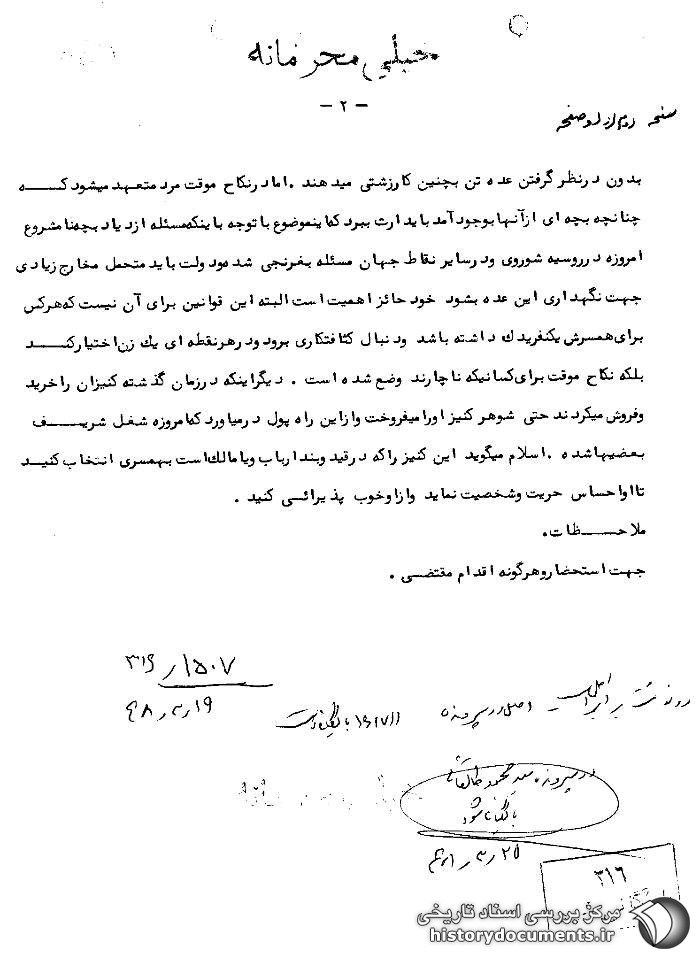 خیلی محرمانه
صفحه دوم از دو صفحه
- ۲ -
بدون درنظر گرفتن عده تن بچنین کارزشتی میدهند . امادرنکاح موقت مرد متعهد میشود که
چنانچه بچه ای ازآنها بوجود آمد باید ارث ببرد که اینموضوع با توجه باینکه مسئله ازدیاد بچه نامشروع
امروزه درروسیه شوروی ودرسایر نقاط جهان مسئله بغرنجی شده ودولت باید متحمل مخارج زیادی
جهت نگهداری این عده بشود خود حائز اهمیت است البته این قوانین برای آن نیست که هرکس
برای همسرش یکنفریدک داشته باشد ودنبال کثافتکاری برود ودرهرنقطه ای یک زن اختیارکند
بلکه نکاح موقت برای کسانیکه ناچارند وضع شده است . دیگراینکه درزمان گذشته کنیزان راخرید
وفروش میکردند حتی شوهر کنیز اورا میفروخت وازاین راه پول درمیاورد که امروزه شغل شریف
بعضیها شده . اسلام میگوید این کنیز راکه درقید وبند ارباب ویا مالک است بهمسری انتخاب کنید
تا اواحساس حریت وشخصیت نماید وازاوخوب پذیرائی کنید .
ملاحظات .
جهت استحضار وهرگونه اقدام مقتضی .
۳۱۶/۱۵۰۷
۴۸/۳/۱۹
اصل در پرونده
در پرونده سید محمود طالقانی
بایگانی شود
۴۸/۳/۲۵
۳۱۶
مرکز بررسی اسناد تاریخی
historydocuments.ir